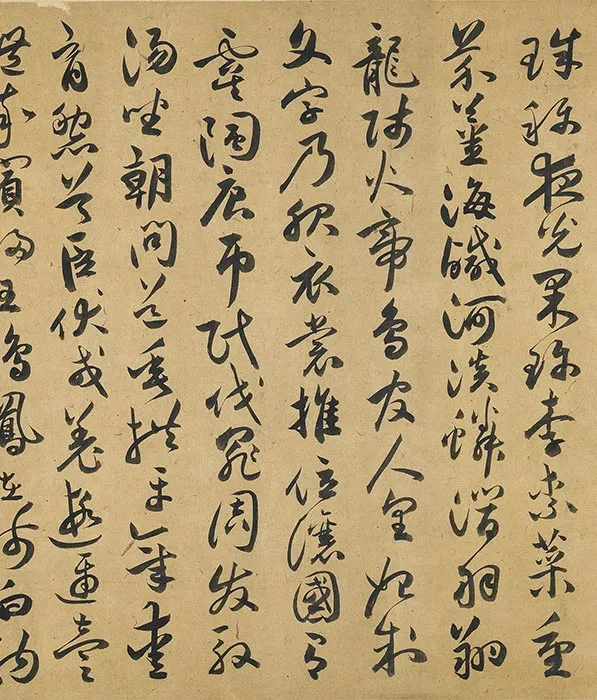 珠称夜光果珍李柰菜重
芥薑海鹹河淡鱗潛羽翔
龍師火帝鳥官人皇始制
文字乃服衣裳推位讓國有
虞陶唐弔民伐罪周發殷
湯坐朝問道垂拱平章愛
育黎首臣伏戎羌遐邇壹
體率賓歸王鳴鳳在樹白駒